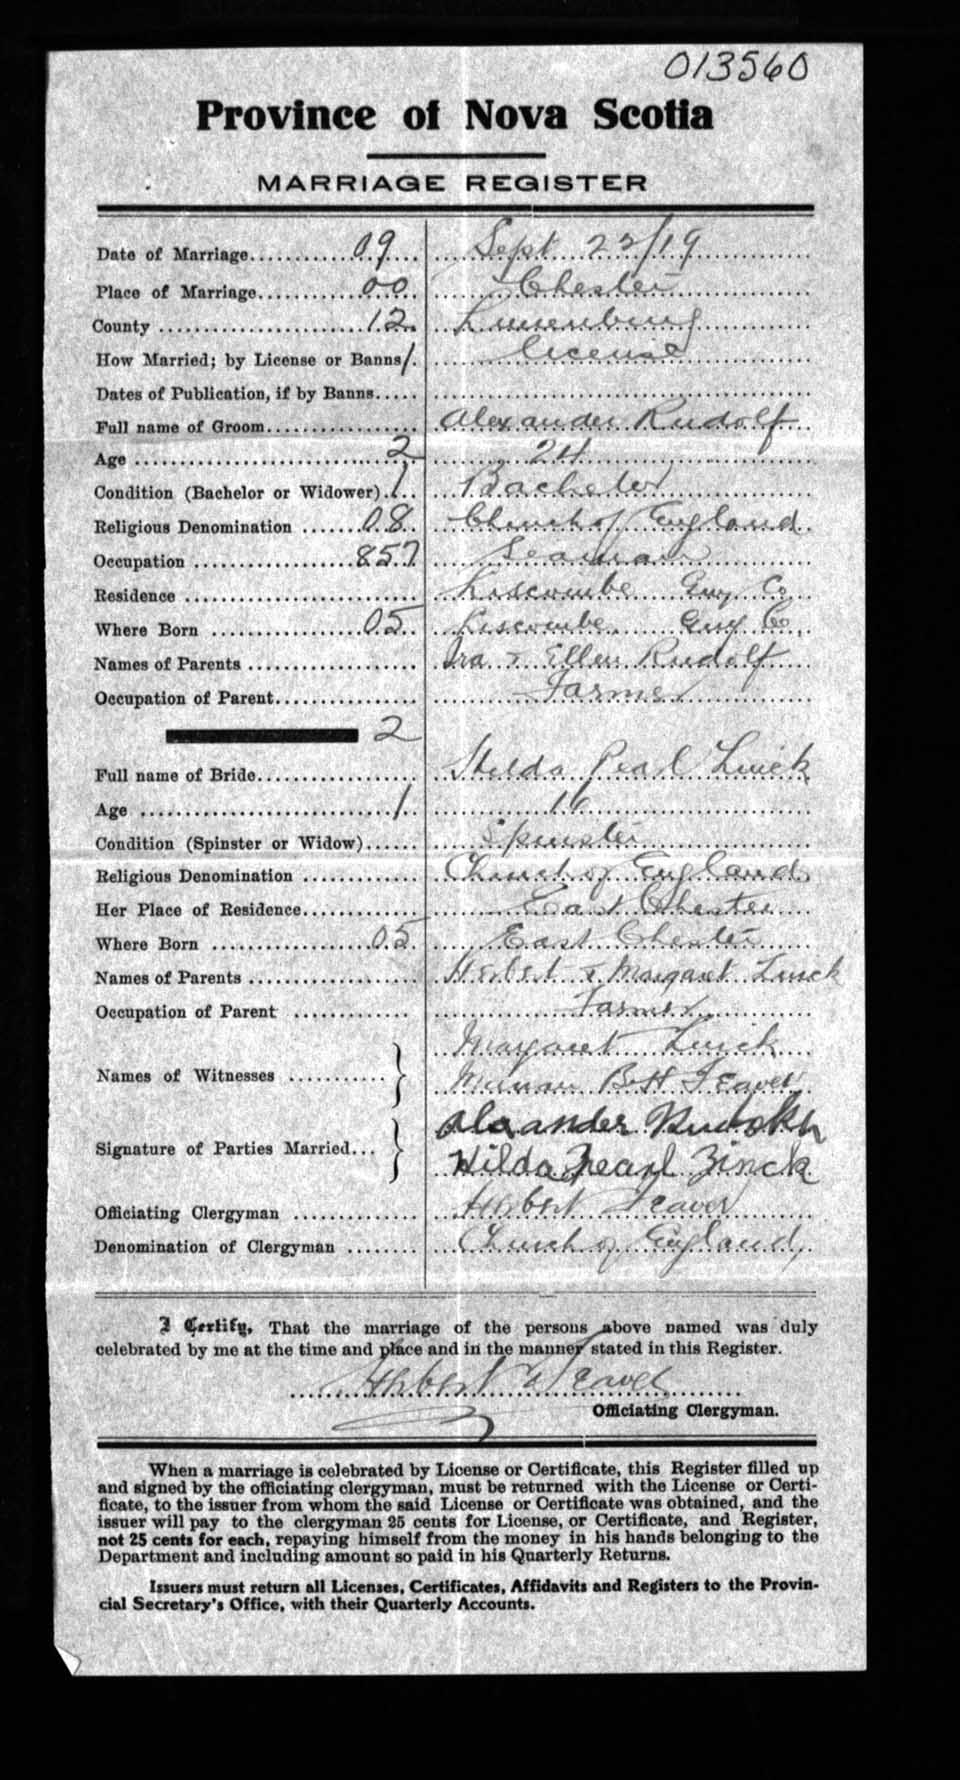 013560
Province of Nova Scotia
MARRIAGE REGISTER
Date of Marriage 09 Sept 23/19
Place of Marriage 00 Chester
County 12 Lunenburg
How Married; by License or Banns 1 license
Dates of Publication, if by Banns
Full name of Groom Alexander Rudolf
Age 2 24
Condition (Bachelor or Widower) 1 Bachelor
Religious Denomination 08 Church of England
Occupation 857 Seaman
Residence Liscombe Guy Co
Where Born 05 Liscombe Guy Co,
Names of Parents Ira & Ellen Rudolf
Occupation of Parent Farmer
2
Full name of Bride Hilda Pearl Zinck
Age 1 16
Condition (Spinster or Widow) Spinster
Religious Denomination Church of England
Her Place of Residence East Chester
Where Born 05 East Chester
Names of Parents Herbert & Margaret Zinck
Occupation of Parent Farmer
Margaret Zinck
Names of Witnesses B H
Signature of Parties Married Alexander
Hilda Pearl Zinck
Officiating Clergyman Herbert
Denomination of Clergyman Church of England,
I Certify, That the marriage of the persons above named was duly
celebrated by me at the time and place and in the manner stated in this Register.
Herbert
Officiating Clergyman.
When a marriage is celebrated by License or Certificate, this Register filled up
and signed by the officiating clergyman, must be returned with the License or Certi-
ficate, to the issuer from whom the said License or Certificate was obtained, and the
issuer will pay to the clergyman 25 cents for License, or Certificate, and Register,
not 25 cents for each, repaying himself from the money in his hands belonging to the
Department and including amount so paid in his Quarterly Returns.
Issuers must return all Licenses, Certificates, Affidavits and Registers to the Provin-
cial Secretary's Office, with their Quarterly Accounts.